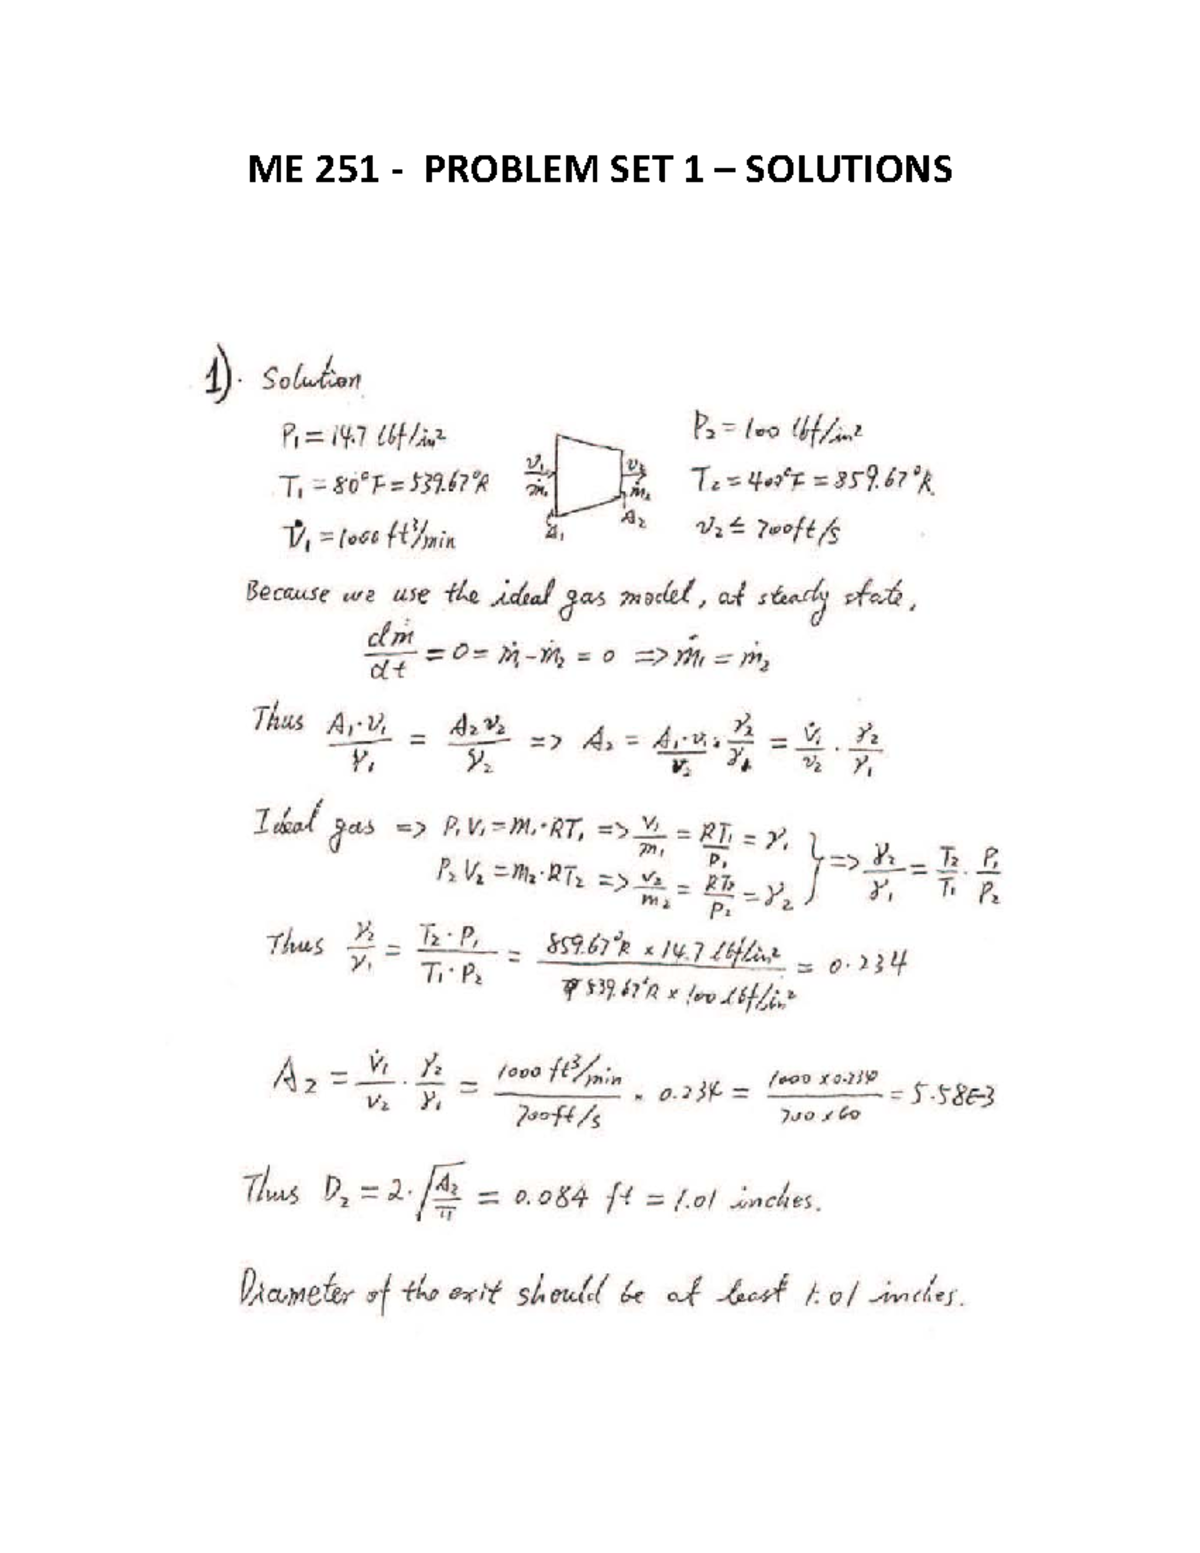 ME 251 - PROBLEM SET 1 – SOLUTIONS
1). Solution
P₁ = 14.7 lbf/in²
T₁ = 80°F = 539.67°R
V̇₁ = 1000 ft³/min
v₁ ṁ₁ A₁ v₂ ṁ₂ A₂
P₂ = 100 lbf/in²
T₂ = 400°F = 859.67°R
v₂ ≤ 700ft/s
Because we use the ideal gas model, at steady state,
dṁ/dt = 0 = ṁ₁ - ṁ₂ = 0 => ṁ₁ = ṁ₂
Thus A₁·v₁/γ₁ = A₂v₂/γ₂ => A₂ = A₁·v₁/v₂ · γ₂/γ₁ = V̇₁/v₂ · γ₂/γ₁
Ideal gas => P₁V₁ = m₁·RT₁ => V₁/m₁ = RT₁/P₁ = γ₁ } => γ₂/γ₁ = T₂/T₁ · P₁/P₂
P₂V₂ = m₂·RT₂ => V₂/m₂ = RT₂/P₂ = γ₂
Thus γ₂/γ₁ = T₂·P₁/T₁·P₂ = 859.67°R × 14.7 lbf/in²/539.67°R × 100 lbf/in² = 0.234
A₂ = V̇₁/v₂ · γ₂/γ₁ = 1000 ft³/min/700ft/s × 0.234 = 1000 × 0.234/700 × 60 = 5.58E-3
Thus D₂ = 2·√A₂/π = 0.084 ft = 1.01 inches.
Diameter of the exit should be at least 1.01 inches.